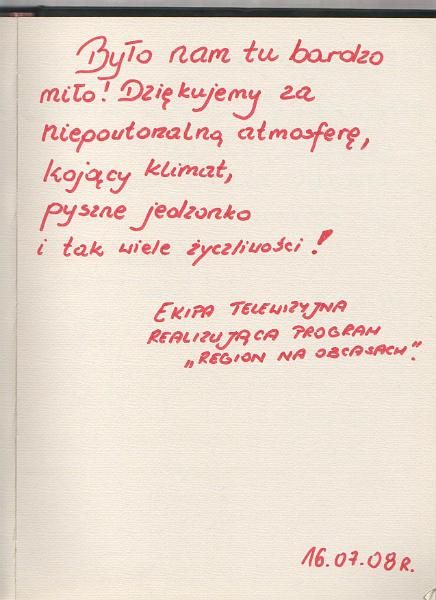 Było nam tu bardzo
miło! Dziękujemy za
niepowtarzalną atmosferę,
kojący klimat,
pyszne jedzonko
i tak wiele życzliwości!
EKIPA TELEWIZYJNA
REALIZUJĄCA PROGRAM
„REGION NA OBCASACH".
16.07.08 R.